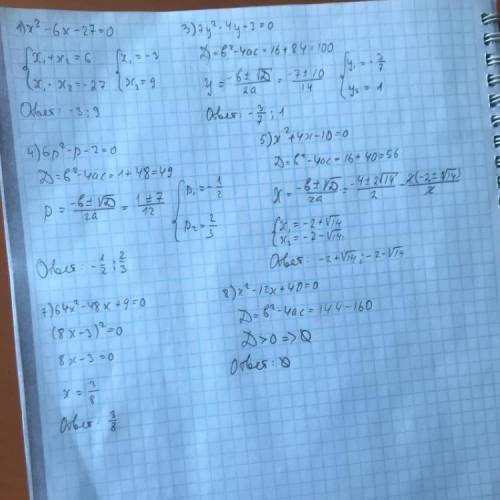 1) x² - 6x - 27 = 0
{ x₁ + x₂ = 6
x₁ · x₂ = -27
{ x₁ = -3
x₂ = 9
Ответ: -3; 9
3) 7y² - 4y + 3 = 0
D = b² - 4ac = 16 + 84 = 100
y = (-b ± √D)/2a = (-7 ± 10)/14
{ y₁ = -3/7
y₂ = 1
Ответ: -3/7; 1
4) 6p² - p - 2 = 0
D = b² - 4ac = 1 + 48 = 49
p = (-b ± √D)/2a = (1 ± 7)/12
{ p₁ = -1/2
p₂ = 2/3
Ответ: -1/2; 2/3
5) x² + 4x - 10 = 0
D = b² - 4ac = 16 + 40 = 56
x = (-b ± √D)/2a = (-4 ± 2√14)/2 = 2(-2 ± √14)/2
{ x₁ = -2 + √14
x₂ = -2 - √14
Ответ: -2 + √14; -2 - √14
7) 64x² - 48x + 9 = 0
(8x - 3)² = 0
8x - 3 = 0
x = 3/8
Ответ: 3/8
8) x² - 12x + 40 = 0
D = b² - 4ac = 144 - 160
D > 0 => ∅
Ответ: ∅